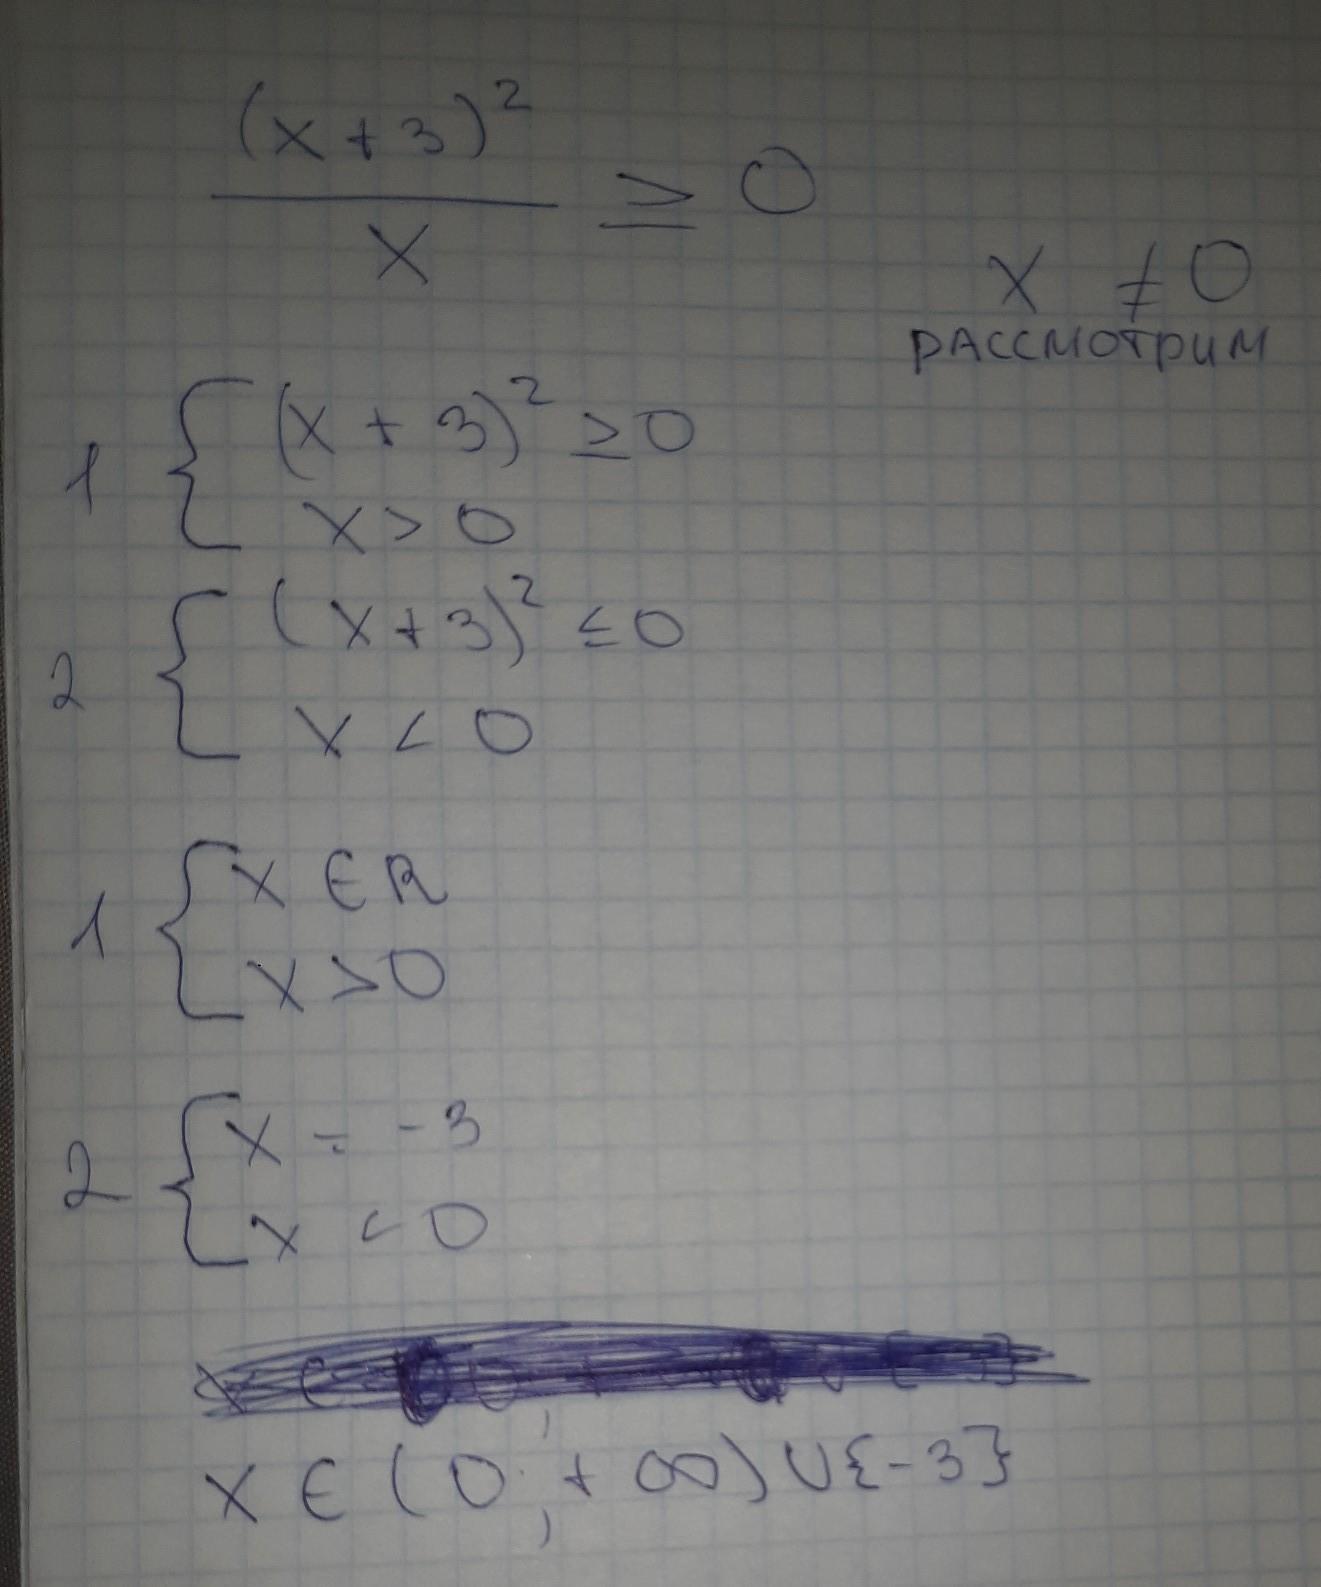 (x+3)²
x
≥ 0
x ≠ 0
РАССМОТРИМ
1 { (x + 3)² ≥ 0
x > 0
2 { (x+3)² ≤ 0
x < 0
1 { x ∈ R
x > 0
2 { x = -3
x < 0
x ∈ (0; +∞) ∪ {-3}